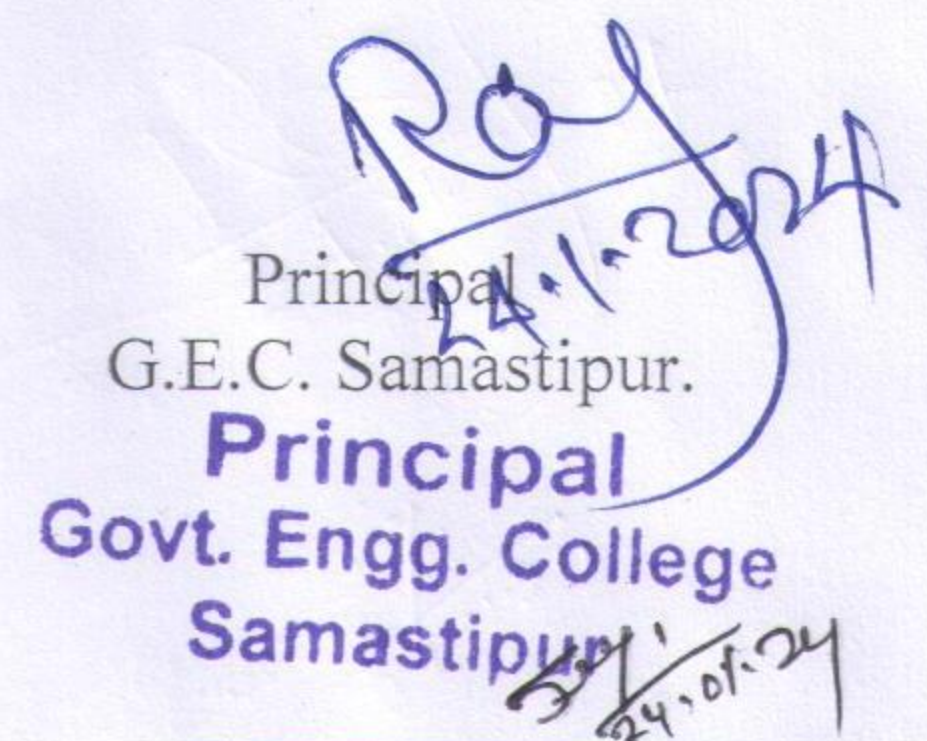 Ray
24.1.2024
Principal
G.E.C. Samastipur.
Principal
Govt. Engg. College
Samastipur
24.01.24